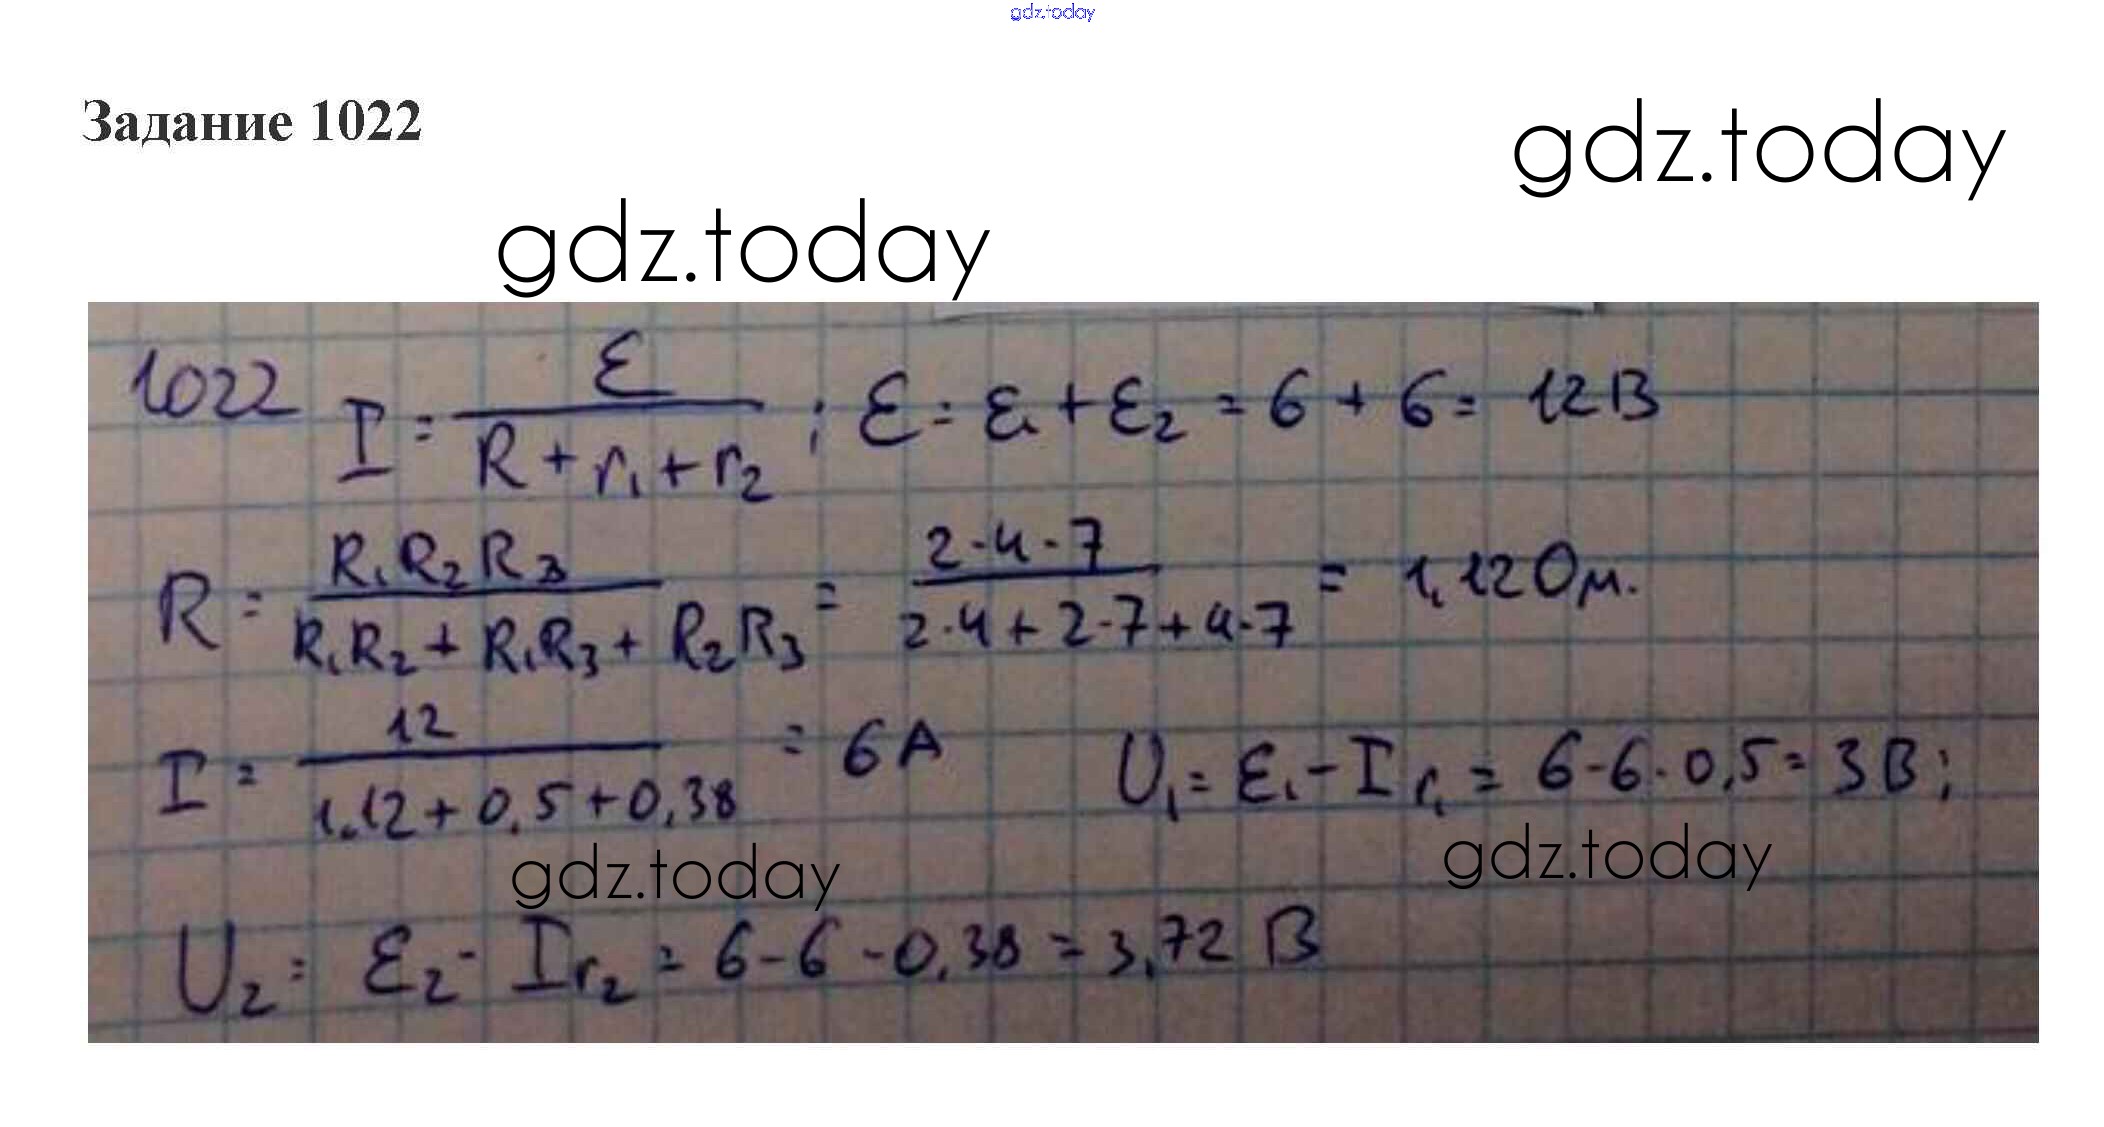 gdz.today
Задание 1022
gdz.today
gdz.today
1022 I = ℰ / (R + r₁ + r₂) ; ℰ = ℰ₁ + ℰ₂ = 6 + 6 = 12 В
R = R₁R₂R₃ / (R₁R₂ + R₁R₃ + R₂R₃) = 2·4·7 / (2·4 + 2·7 + 4·7) = 1,12 Ом.
I = 12 / (1,12 + 0,5 + 0,38) = 6 А U₁ = ℰ₁ - Ir₁ = 6 - 6·0,5 = 3 В;
gdz.today
gdz.today
U₂ = ℰ₂ - Ir₂ = 6 - 6 - 0,38 = 3,72 В